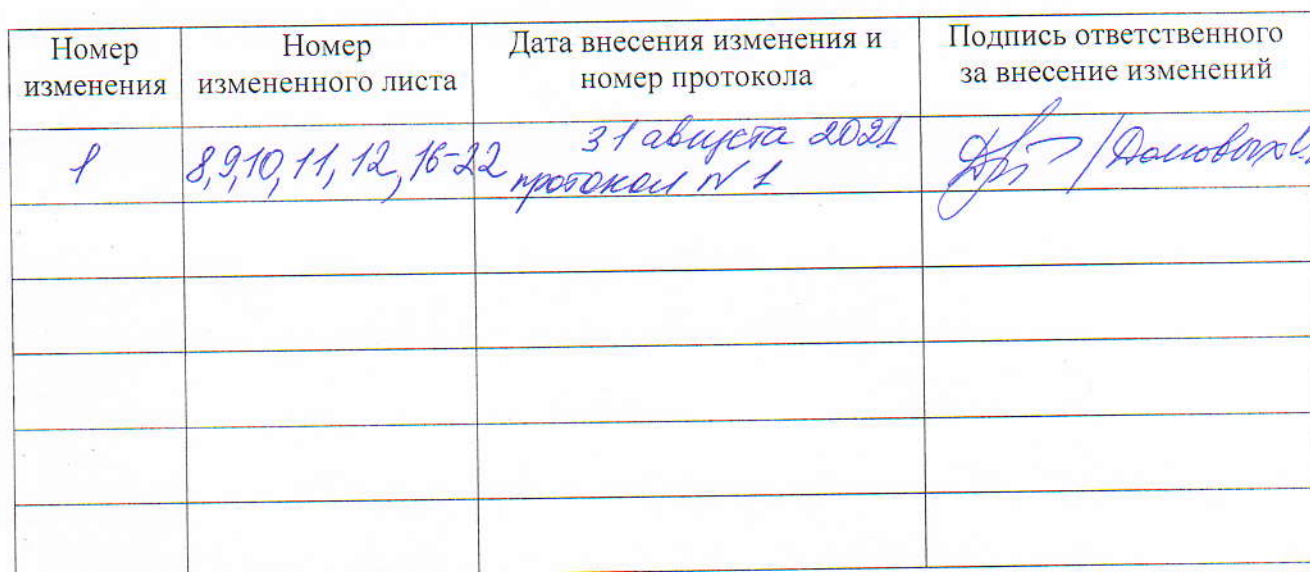 Номер изменения
Номер измененного листа
Дата внесения изменения и номер протокола
Подпись ответственного за внесение изменений
1
8,9,10,11,12,16-22
31 августа 2021
протокол N 1